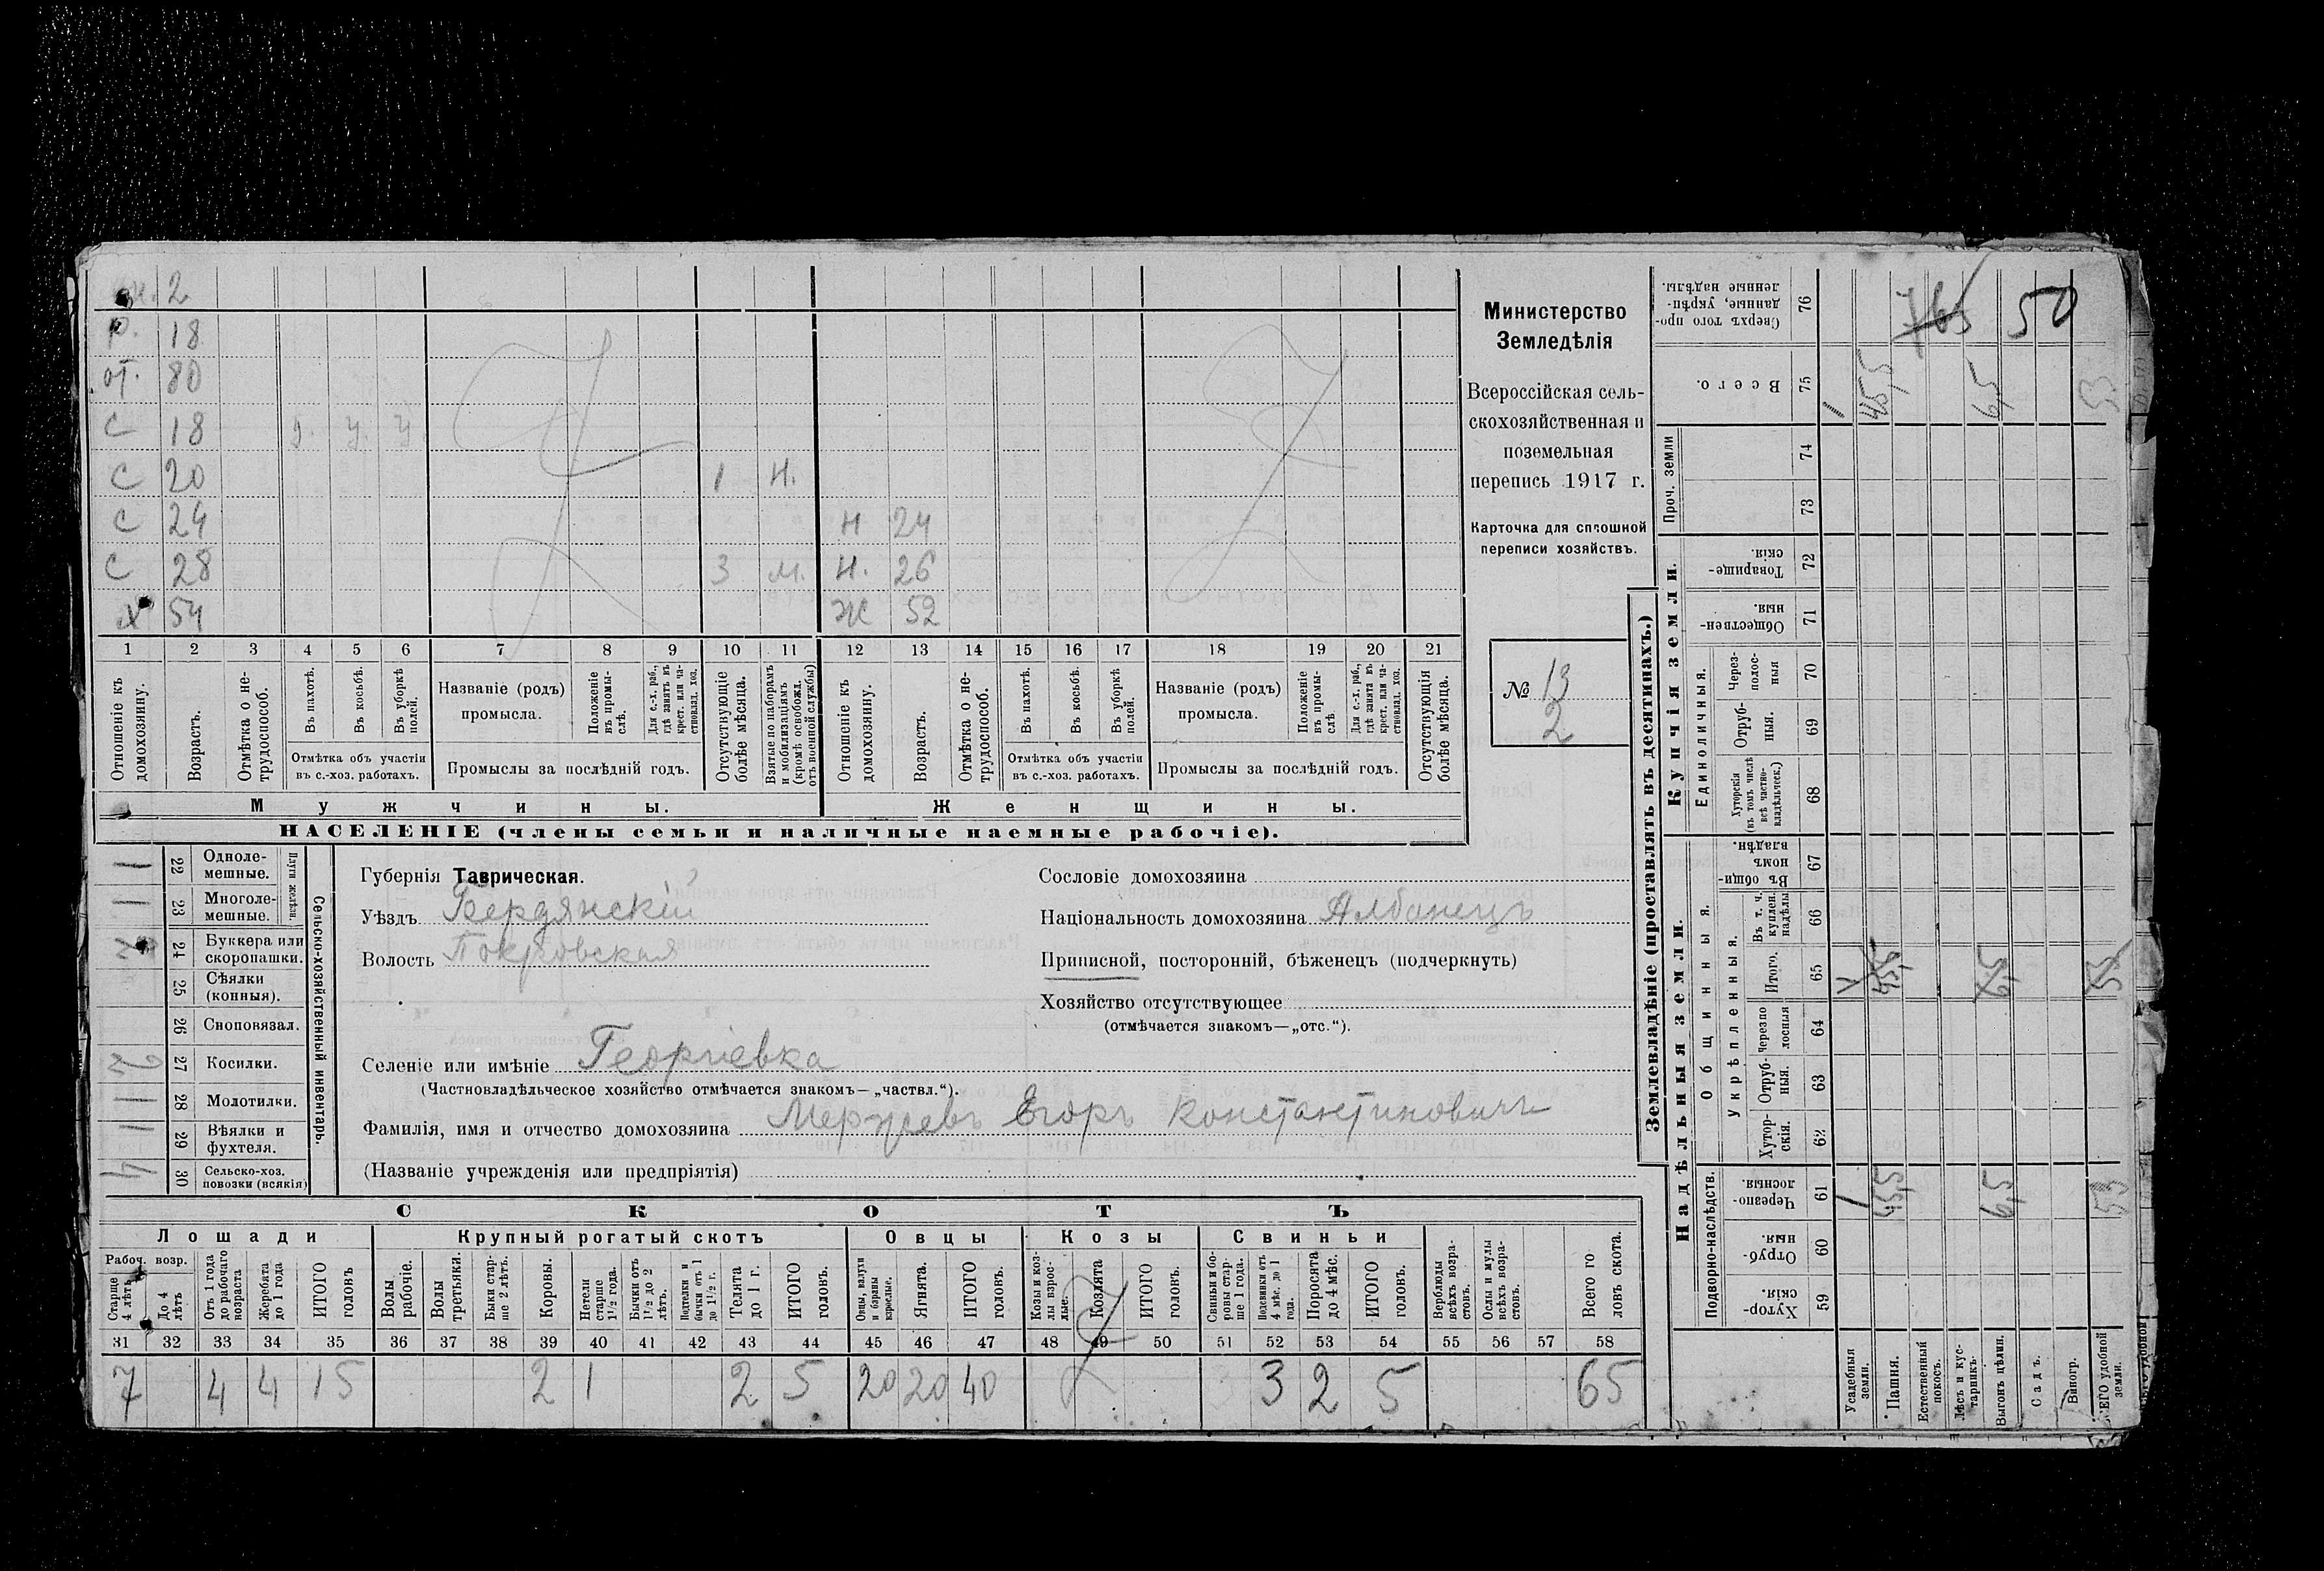 2
р. 18
от. 80
с 18 у. у. у.
с 20 1 н.
с 24 н 24
с 28 3 м. н. 26
х 54 ж 52
1 2 3 4 5 6 7 8 9 10 11 12 13 14 15 16 17 18 19 20 21
Отношеніе къ домохозяину.
Возрастъ.
Отмѣтка о не-трудоспособ.
Въ пахотѣ.
Въ косьбѣ.
Въ уборкѣ полей.
Отмѣтка объ участіи
въ с.-хоз. работахъ.
Названіе (родъ)
промысла.
Положеніе въ промы-слѣ.
Для с.-х. раб., гдѣ занятъ въ крест. или ча-стновлад. хоз.
Промыслы за послѣдній годъ.
Отсутствующіе болѣе мѣсяца.
Взятые по наборамъ и мобилизаціямъ (кромѣ освобожд. отъ военной службы)
Отношеніе къ домохозяину.
Возрастъ.
Отмѣтка о не-трудоспособ.
Въ пахотѣ.
Въ косьбѣ.
Въ уборкѣ полей.
Отмѣтка объ участіи
въ с.-хоз. работахъ.
Названіе (родъ)
промысла.
Положеніе въ промы-слѣ
Для с.-х. раб., гдѣ занята въ крест. или ча-стновлад. хоз.
Промыслы за послѣдній годъ.
Отсутствующія болѣе мѣсяца.
Мужчины. Женщины.
НАСЕЛЕНІЕ (члены семьи и наличные наемные рабочіе).
Министерство
Земледѣлія
Всероссійская сель-
скохозяйственная и
поземельная
перепись 1917 г.
Карточка для сплошной
переписи хозяйствъ.
№ 13
2
Сельско-хозяйственный инвентарь.
Плуги желѣзн.
1 22 Одноле-мешные.
1 23 Многоле-мешные.
24 Буккера или скоропашки.
25 Сѣялки (конныя).
26 Сноповязал.
27 Косилки.
28 Молотилки.
1 29 Вѣялки и фухтеля.
4 30 Сельско-хоз. повозки (всякія)
Губернія Таврическая.
Уѣздъ Бердянскій
Волость Покровская
Селеніе или имѣніе Георгіевка
(Частновладѣльческое хозяйство отмѣчается знакомъ—„частвл.“).
Фамилія, имя и отчество домохозяина Мержевъ Егоръ Константиновичъ
(Названіе учрежденія или предпріятія)
Сословіе домохозяина
Національность домохозяина Албанецъ
Приписной, посторонній, бѣженецъ (подчеркнуть)
Хозяйство отсутствующее
(отмѣчается знакомъ—„отс.“).
СКОТЪ
Лошади Крупный рогатый скотъ Овцы Козы Свиньи
Рабоч. возр.
Старше 4 лѣтъ
До 4 лѣтъ
Отъ 1 года до рабочаго возраста
Жеребята до 1 года
ИТОГО головъ
Волы рабочіе.
Волы третьяки.
Быки стар-ше 2 лѣтъ.
Коровы.
Нетели старше 1½ года.
Бычки отъ 1½ до 2 лѣтъ.
Подтелки и бычки отъ 1 до 1½ г.
Телята до 1 г.
ИТОГО головъ.
Овцы, валухи и бараны взрослые.
Ягнята.
ИТОГО головъ.
Козы и коз-лы взрос-лые.
Козлята
ИТОГО головъ.
Свиньи и бо-ровы стар-ше 1 года.
Подсвинки отъ 4 мѣс. до 1 года.
Поросята до 4 мѣс.
ИТОГО головъ.
Верблюды всѣхъ возра-стовъ.
Ослы и мулы всѣхъ возра-стовъ.
Всего го ловъ скота.
31 32 33 34 35 36 37 38 39 40 41 42 43 44 45 46 47 48 49 50 51 52 53 54 55 56 57 58
7 4 4 15 2 1 2 5 20 20 40 3 2 5 65
Землевладѣніе (проставлять въ десятинахъ.)
Надѣльныя земли. Купчія земли. Проч. земли
Подворно-наслѣдств.
Общинныя.
Укрѣпленныя.
Единоличныя.
59 Хутор-скія.
60 Отруб-ныя.
61 Черезпо-лосныя.
62 Хутор-скія.
63 Отруб-ныя.
64 Черезпо лосныя
65 Итого.
66 Въ т. ч. куплен. надѣлы
67 Въ общин-номъ владѣн.
68 Хуторскія (въ томъ числѣ всѣ частно-владѣльческ.)
69 Отруб-ныя.
70 Через-полос-ныя
71 Обществен-ныя.
72 Товарище-скія.
73
74
75 Всего.
76 Сверхъ того про-данные, укрѣп-ленные надѣлы.
Усадебныя земли. 1 1
Пашня. 45,5 45,5 45,5
Естественный покосъ.
Лѣсъ и кус-тарникъ.
Выгонъ цѣлин. 6,5 6,5 6,5
Садъ.
Виногр.
ВСЕГО удобной земли. 53 53 53
765 50